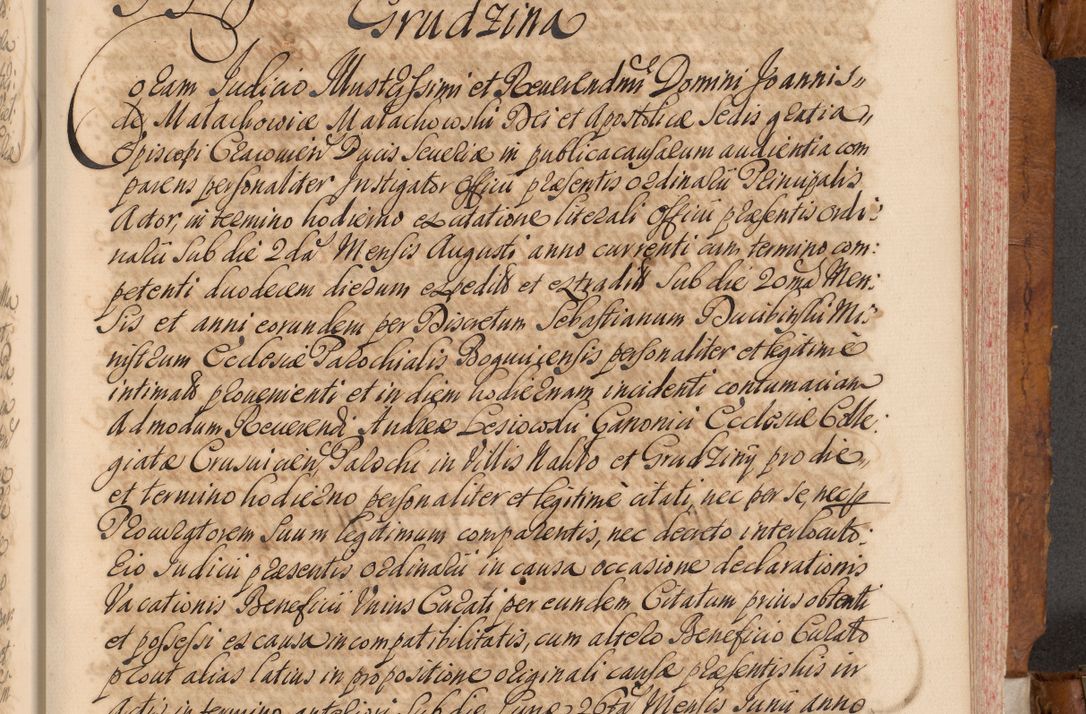 Grudzina
Coram Judicio Illustrissimi et Reverendmi Domini Joannis
de Małachowice Małachowski Dei et Apostolicæ Sedis gratia
Episcopi Cracovien Ducis Severiæ in publica causarum audientia com
parens personaliter Instigator Officii præsentis Ordinarii Principalis
Actor, in termino hodierno ex citatione literali Officii præsentis Ordi:
narii sub die 2da Mensis Augusti anno currenti cum termino com:
petenti duodecem dierum expedita et extradita sub die 20ma Men
sis et anni eorundem per Discretum Sebastianum Ministrum
nistrum Ecclesiæ Parochialis personaliter et legitime
intimata provenienti et in diem hodiernam incidenti contumaciam
Admodum Reverendi Andreæ Canonici Ecclesiæ Colle:
giatæ Parochi in Villis et Grudziny pro die
et termino hodierno personaliter et legitime citati, nec per se, nec p
Procuratorem suum legitimum comparentis, nec decreto interlocuto:
rio Judicii præsentis Ordinarii in causa occasione declarationis
Vacationis Beneficii Unius Curati per eundem Citatum prius obtenti
et possessi ex causa incompatibilitatis, cum altero Beneficio Curato
prout alias latius in propositione originali causæ præsentis his in
Actis in termino anteriori sub die Lunæ 26ta Mensis Junii anno